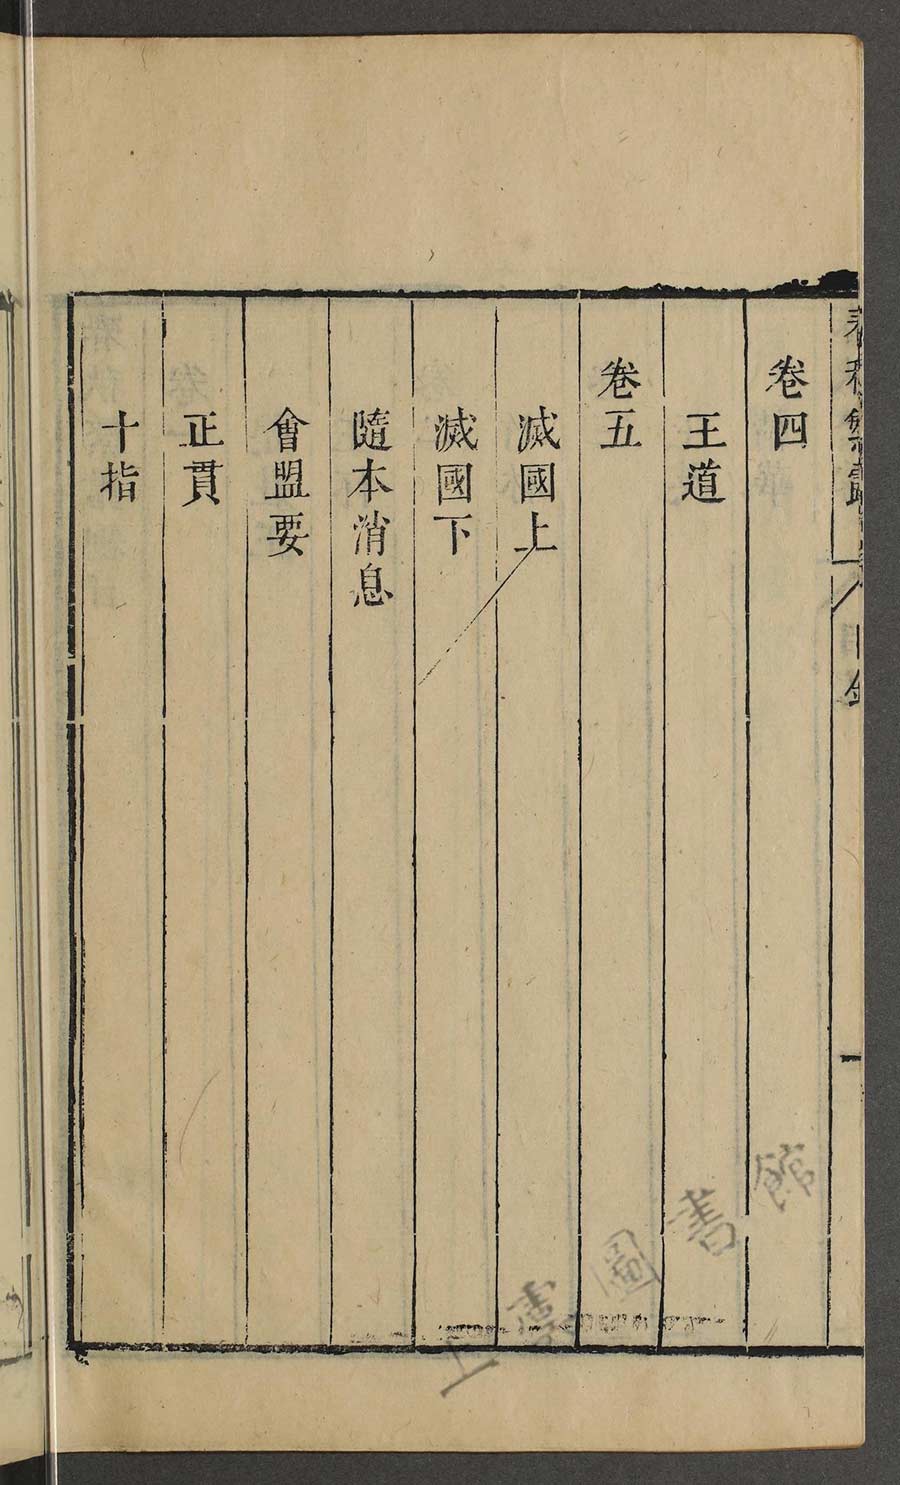 春秋繁露
目錄
卷四
王道
卷五
滅國上
滅國下
隨本消息
會盟要
正貫
十指
圖書館